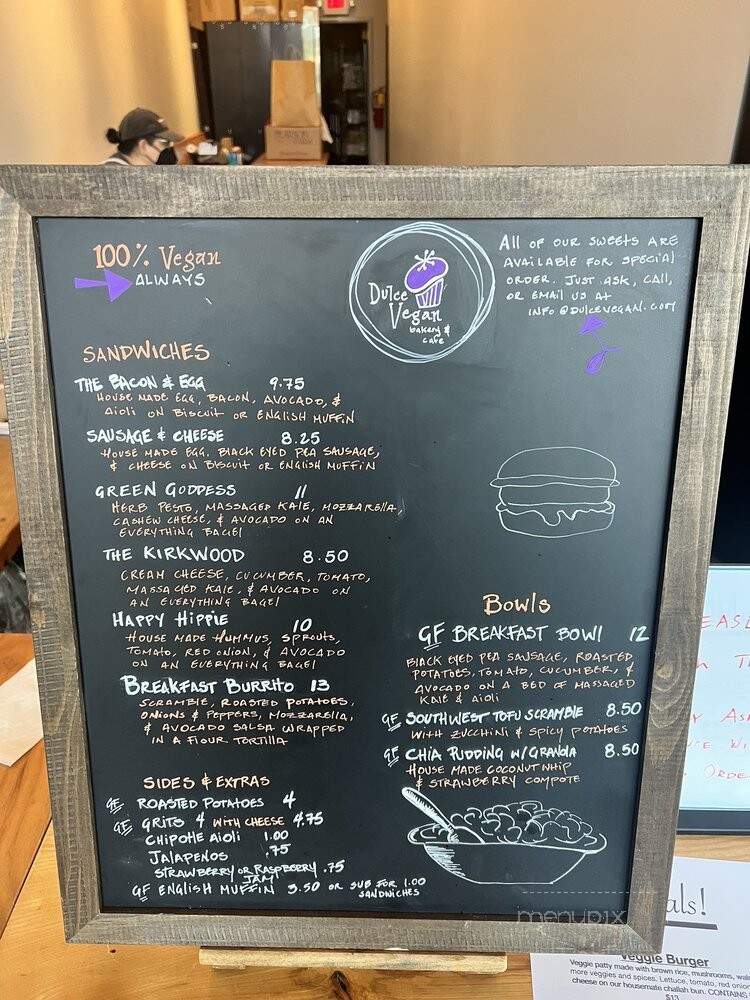 100% Vegan
ALWAYS
Dulce
Vegan
bakery &
cafe
ALL OF OUR SWEETS ARE
AVAILABLE FOR SPECIAL
ORDER. JUST ASK, CALL,
OR EMAIL US AT
INFO@DULCEVEGAN.COM
SANDWICHES
THE BACON & EGG 9.75
HOUSE MADE EGG, BACON, AVOCADO, &
AIOLI ON BISCUIT OR ENGLISH MUFFIN
SAUSAGE & CHEESE 8.25
HOUSE MADE EGG, BLACK EYED PEA SAUSAGE,
& CHEESE ON BISCUIT OR ENGLISH MUFFIN
GREEN GODDESS 11
HERB PESTO, MASSAGED KALE, MOZZARELLA,
CASHEW CHEESE, & AVOCADO ON AN
EVERYTHING BAGEL
THE KIRKWOOD 8.50
CREAM CHEESE, CUCUMBER, TOMATO,
MASSAGED KALE, & AVOCADO ON
AN EVERYTHING BAGEL
HAPPY HIPPIE 10
HOUSE MADE HUMMUS, SPROUTS,
TOMATO, RED ONION, & AVOCADO
ON AN EVERYTHING BAGEL
BREAKFAST BURRITO 13
SCRAMBLE, ROASTED POTATOES,
ONIONS & PEPPERS, MOZZARELLA,
& AVOCADO SALSA WRAPPED
IN A FLOUR TORTILLA
SIDES & EXTRAS
GF ROASTED POTATOES 4
GF GRITS 4 WITH CHEESE 4.75
CHIPOTLE AIOLI 1.00
JALAPENOS .75
STRAWBERRY OR RASPBERRY .75
JAM
GF ENGLISH MUFFIN 3.50 OR SUB FOR 1.00
SANDWICHES
BOWLS
GF BREAKFAST BOWL 12
BLACK EYED PEA SAUSAGE, ROASTED
POTATOES, TOMATO, CUCUMBER, &
AVOCADO ON A BED OF MASSAGED
KALE & AIOLI
GF SOUTHWEST TOFU SCRAMBLE 8.50
WITH ZUCCHINI & SPICY POTATOES
GF CHIA PUDDING W/GRANOLA 8.50
HOUSE MADE COCONUT WHIP
& STRAWBERRY COMPOTE
menupix
als!
Veggie Burger
Veggie patty made with brown rice, mushrooms, wal
more veggies and spices. Lettuce, tomato, red onio
cheese on our housemate challah bun. CONTAINS